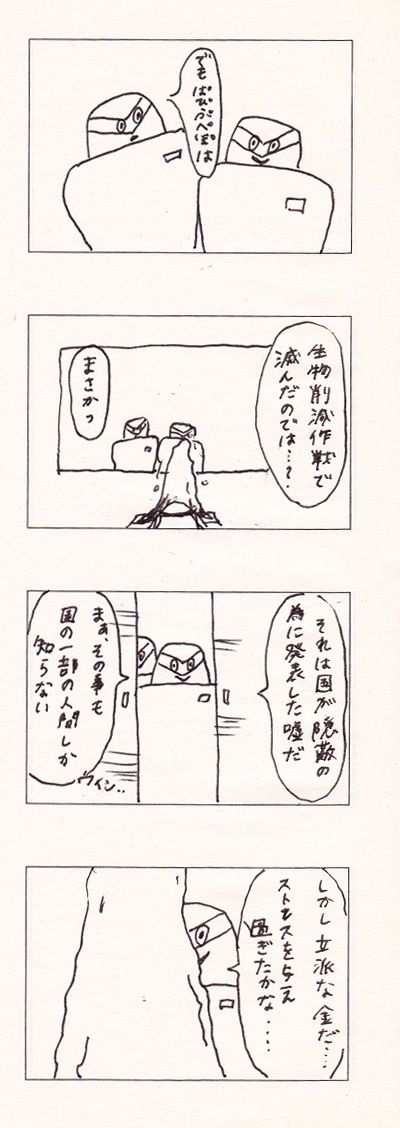 でも
ぱぴぷぺぽは
生物削減作戦で
滅んだのでは…?
まさかっ
それは国が隠蔽の
為に発表した嘘だ
まぁ、その事も
国の一部の人間しか
知らない
ウイン..
しかし立派な金だ…
ストレスを与え
過ぎたかな・・・・